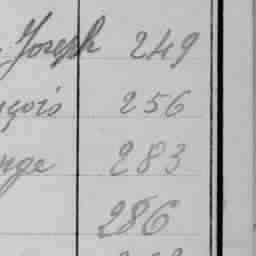 Joseph 249
çois 256
nge 283
286